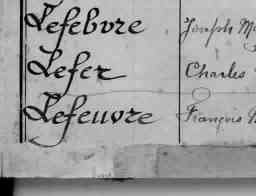 Lefebvre Joseph M
Lefer Charles
Lefeuvre François